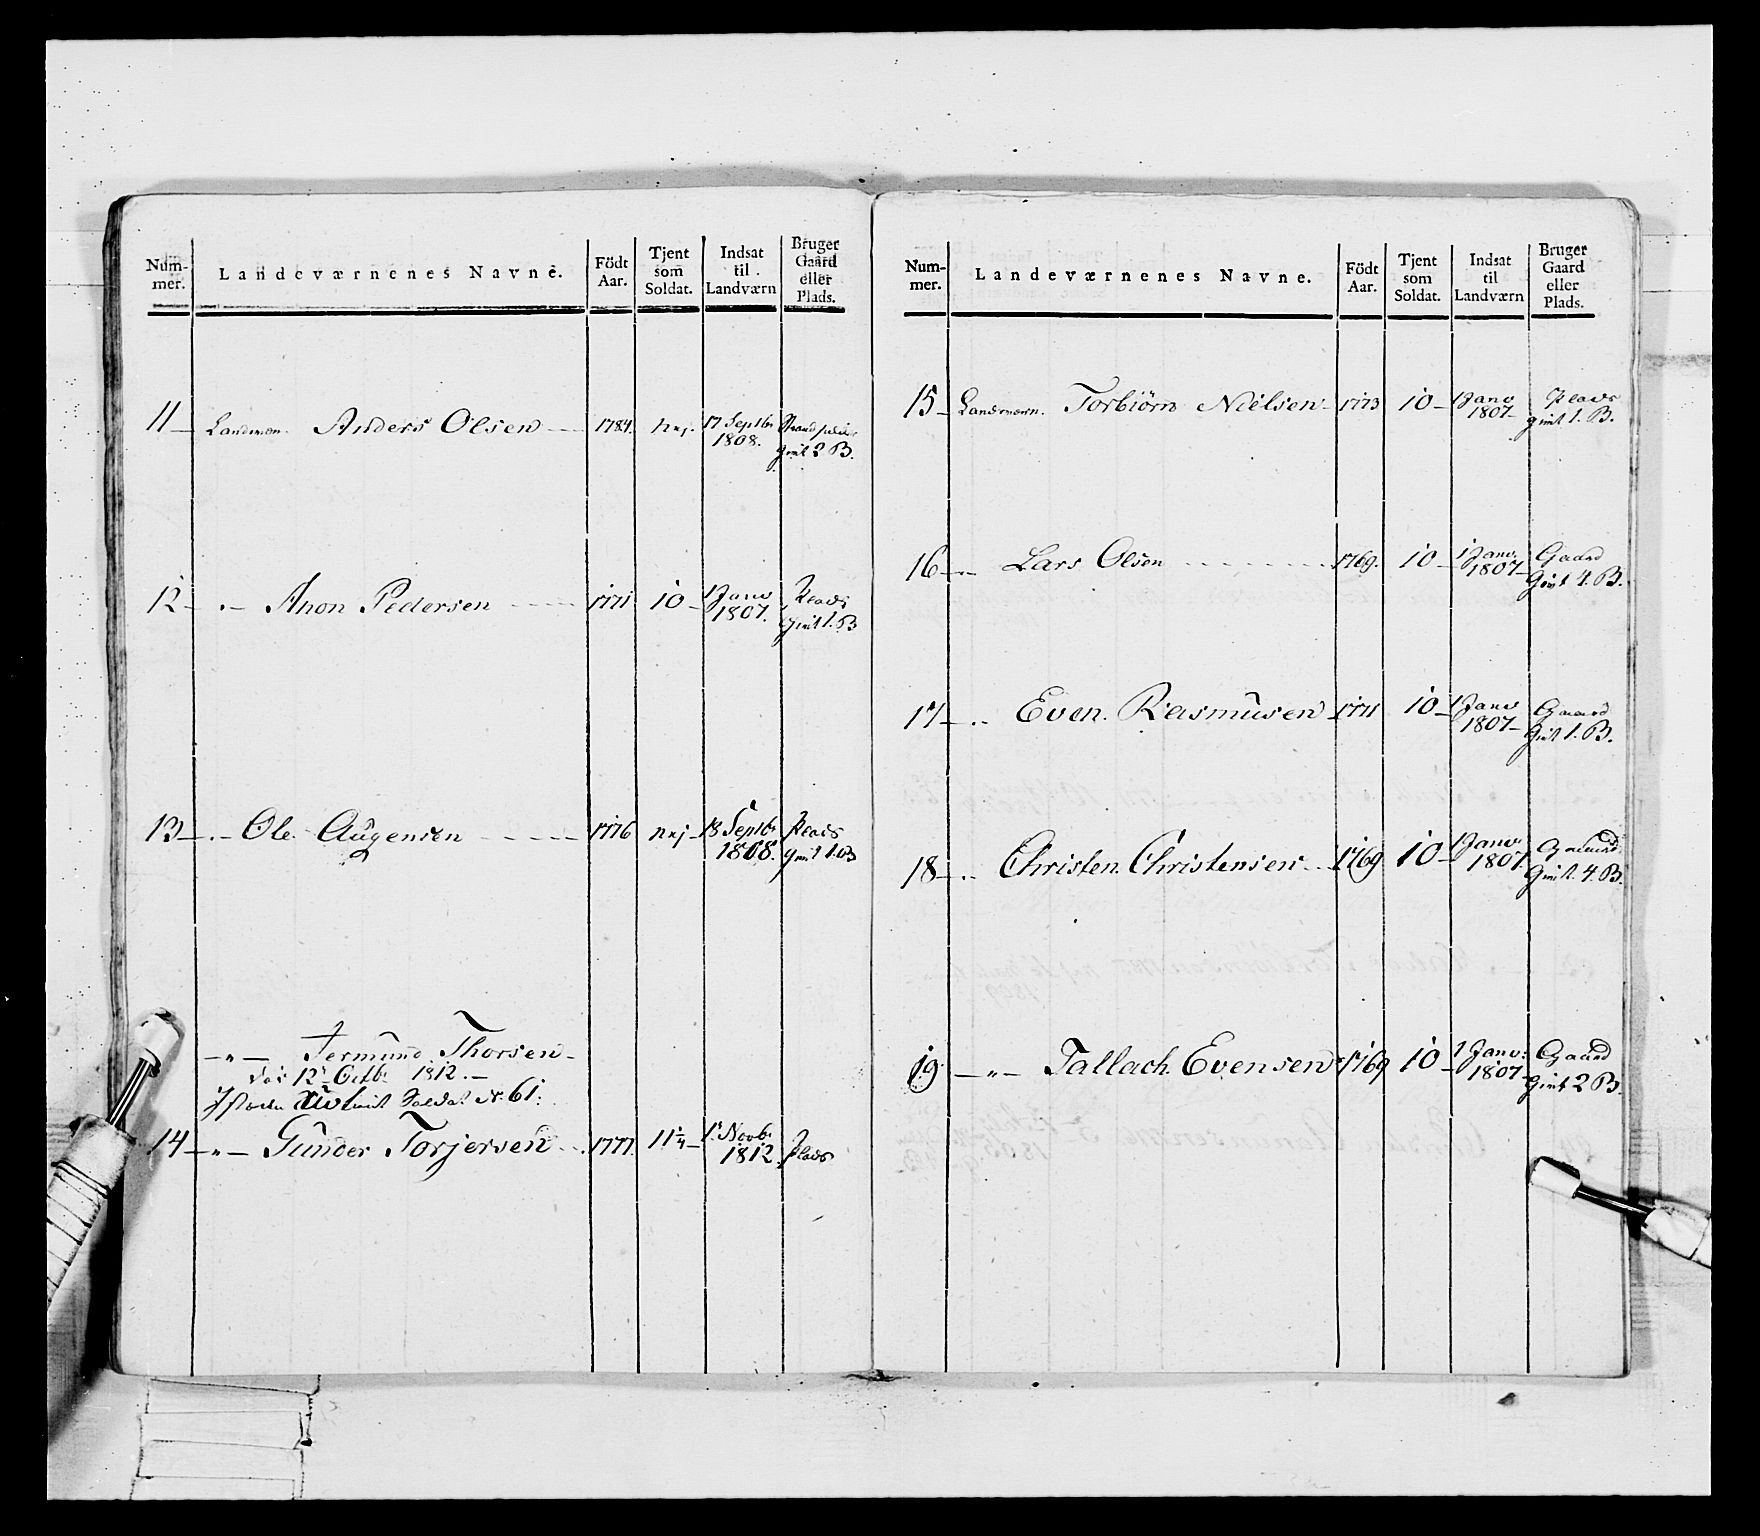 Num-
mer.
Landeværnenes Navne.
Födt
Aar.
Tjent
som
Soldat.
Indsat
til
Landværn
Bruger
Gaard
eller
Plads.
11 Landværn. Anders Olsen 1784. nej. 17 Septbr
1808.
givt 2 B.
12 Anon Pedersen 1771 10 1 Janv
1807.
Plads
Givt 1. B
13 Ole Augensen 1776 nej 18 Septbr
1808.
Plads
Givt 1. B
Termund Thorsen
12te Octbr 1812.
Soldat No 61:
14 Gunder Torjersen 1777. 11 1/4 1t Novbr
1812
Plads
Num-
mer.
Landeværnenes Navne.
Födt
Aar.
Tjent
som
Soldat.
Indsat
til
Landværn
Bruger
Gaard
eller
Plads.
15 Landværn. Torbiörn Nielsen 1773 10 1 Janv
1807
Plads
givt 1. B.
16 Lars Olsen 1769. 10 1 Janv.
1807
Gaard
Givt 4. B.
17 Even Rasmusen 1771 10 1 Janv
1807
Gaard
Givt 1. B.
18 Christen Christensen 1769 10 1 Janv.
1807.
Gaard
Givt. 4. B.
19 Tallach Evensen 1769 10 1 Janv:
1807
Gaard
Givt 2 B.